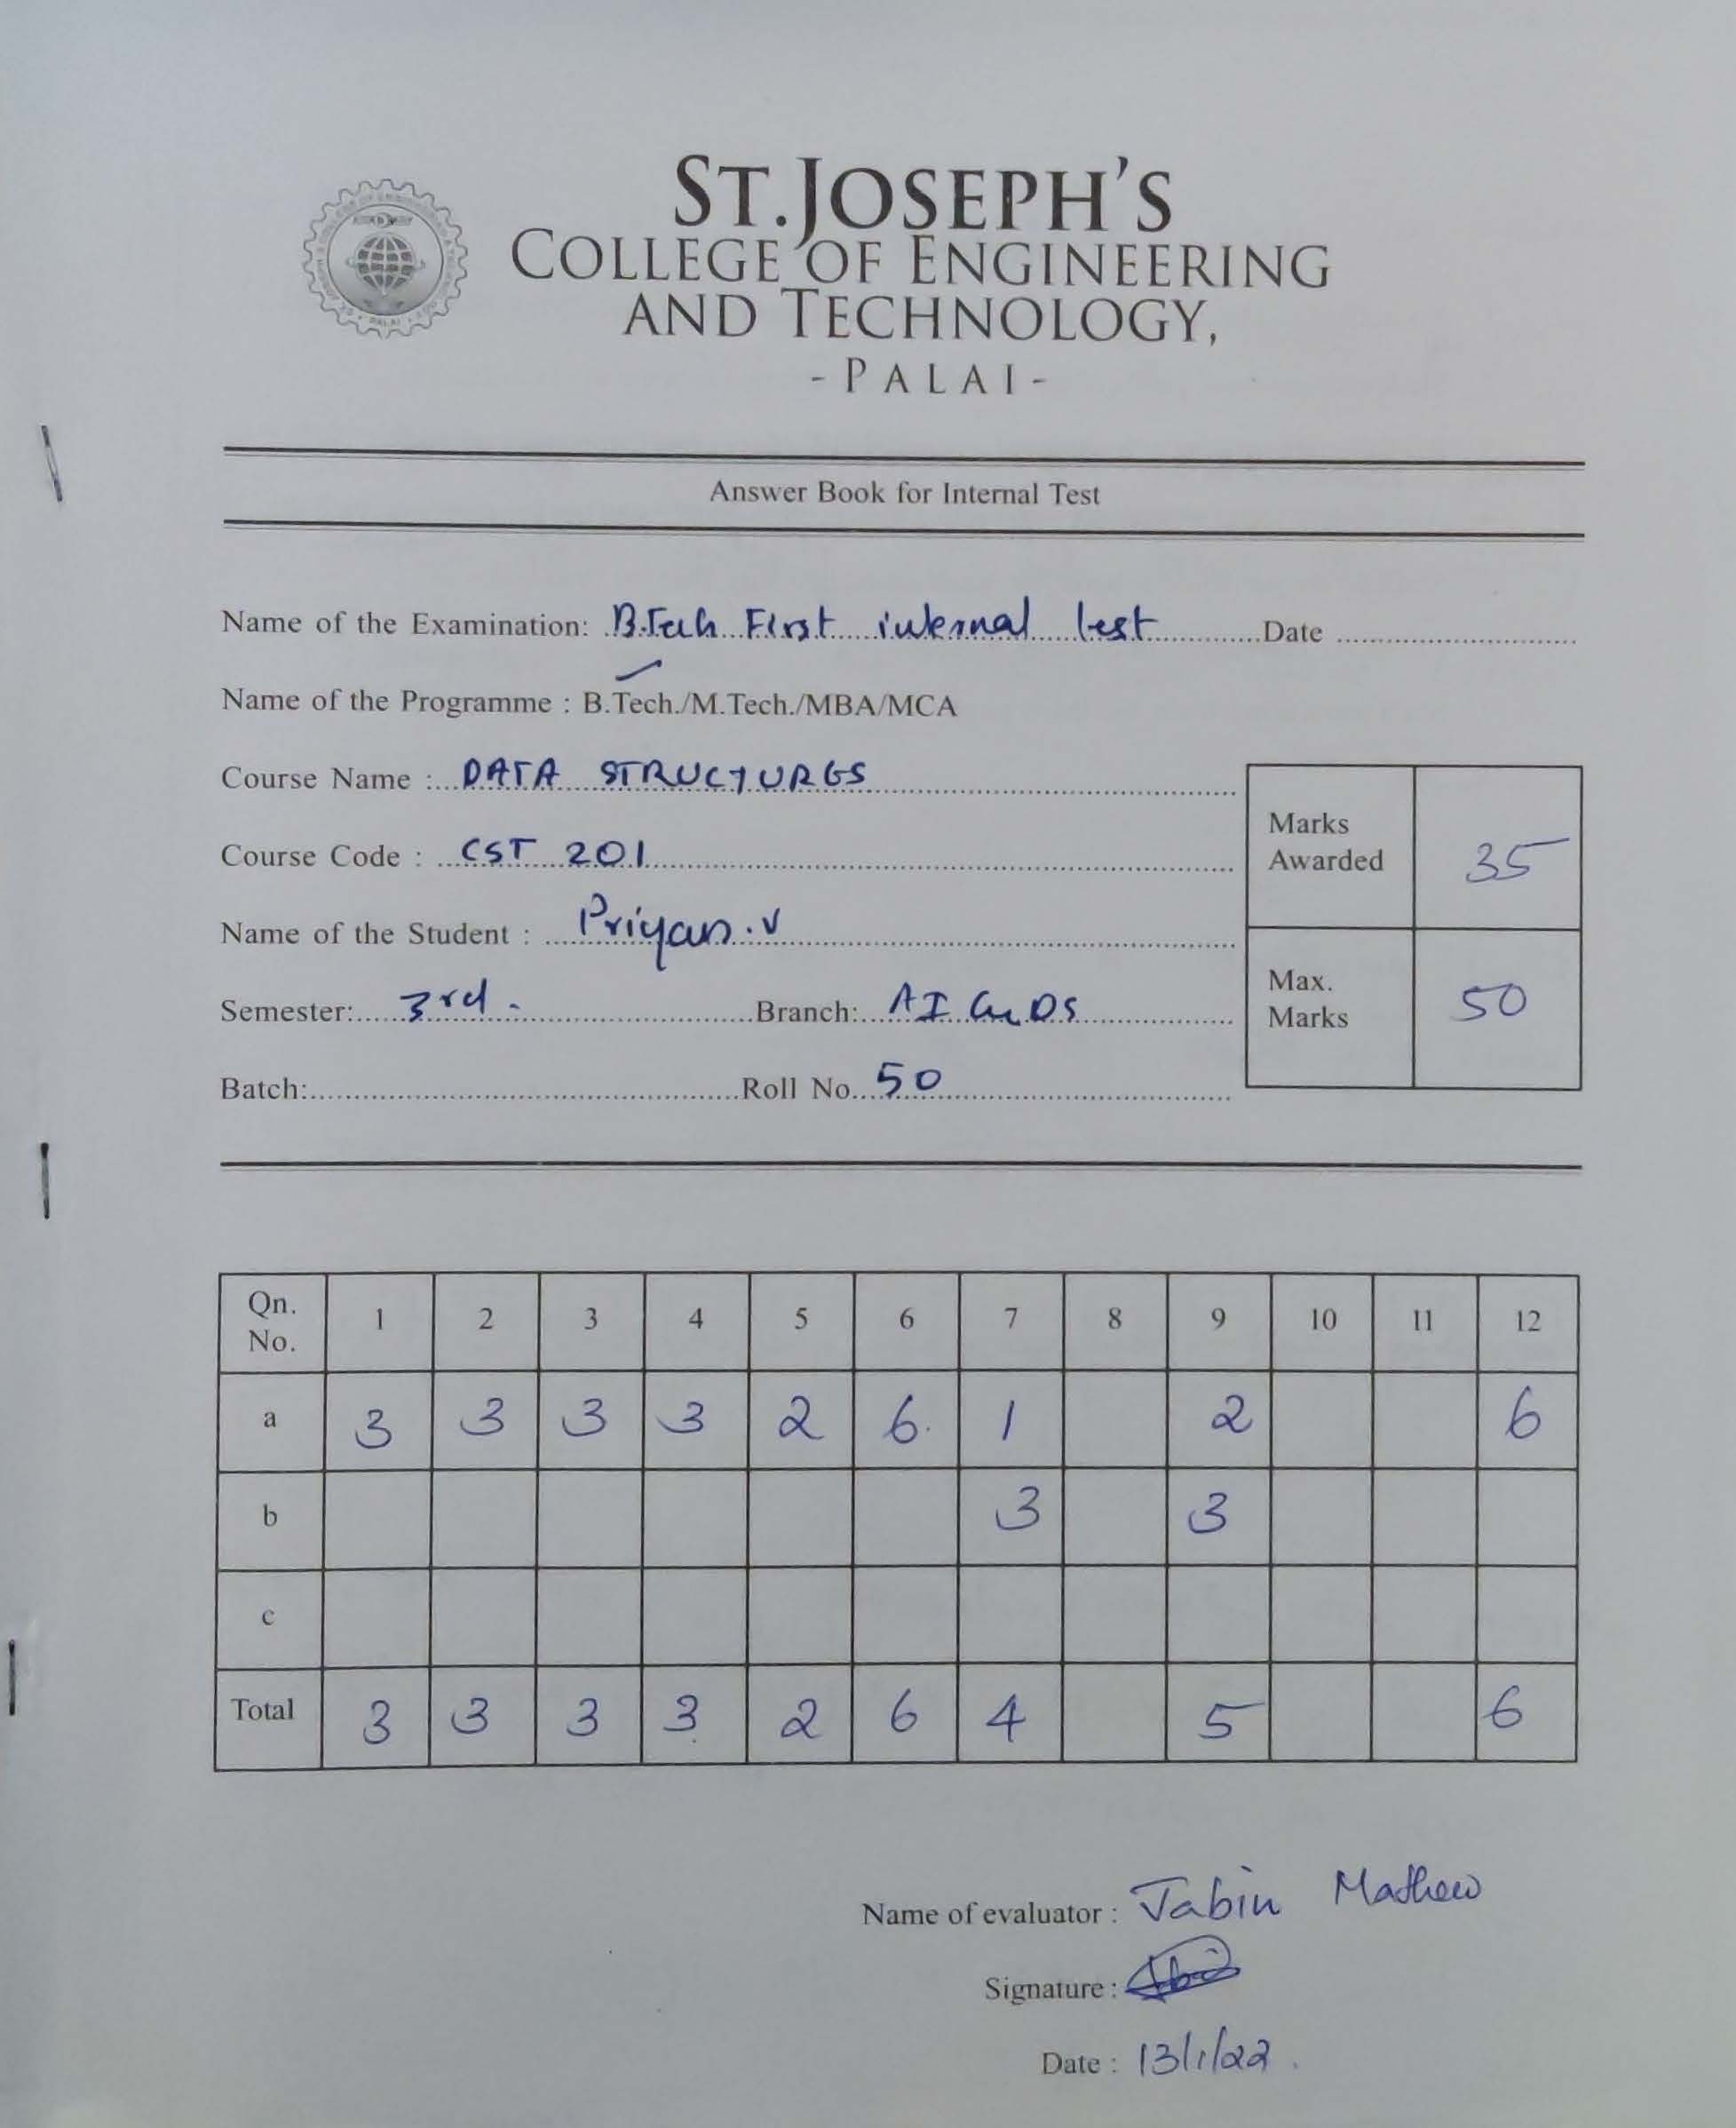 ST.JOSEPH'S
COLLEGE OF ENGINEERING
AND TECHNOLOGY,
- PALAI -
Answer Book for Internal Test
Name of the Examination: B.Tech First internal test Date
Name of the Programme : B.Tech./M.Tech./MBA/MCA
Course Name : DATA STRUCTURES
Marks Awarded 35
Course Code : CST 201
Name of the Student : Priyan.V
Max. Marks 50
Semester: 3rd. Branch: AI & DS
Batch: Roll No. 50
Qn. No. 1 2 3 4 5 6 7 8 9 10 11 12
a 3 3 3 3 2 6. 1 2 6
b 3 3
c
Total 3 3 3 3 2 6 4 5 6
Name of evaluator : Jabin Mathew
Signature :
Date : 13/1/22.